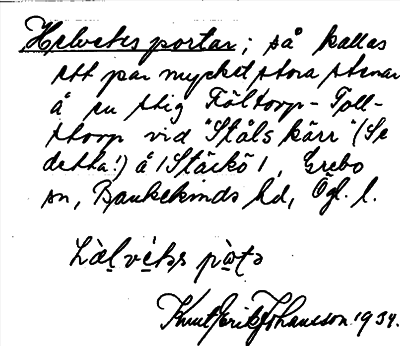 Helvetes portar; så kallas
ett par mycket stora stenar
å en stig Fältorp-Toll-
storp vid "Ståls kärr" (Se
detta!) å /Stärkö/, Grebo
sn, Bankekinds hd, Ögl. l.
hàlvétəs pòtə
Knut Erik Johansson 1934.